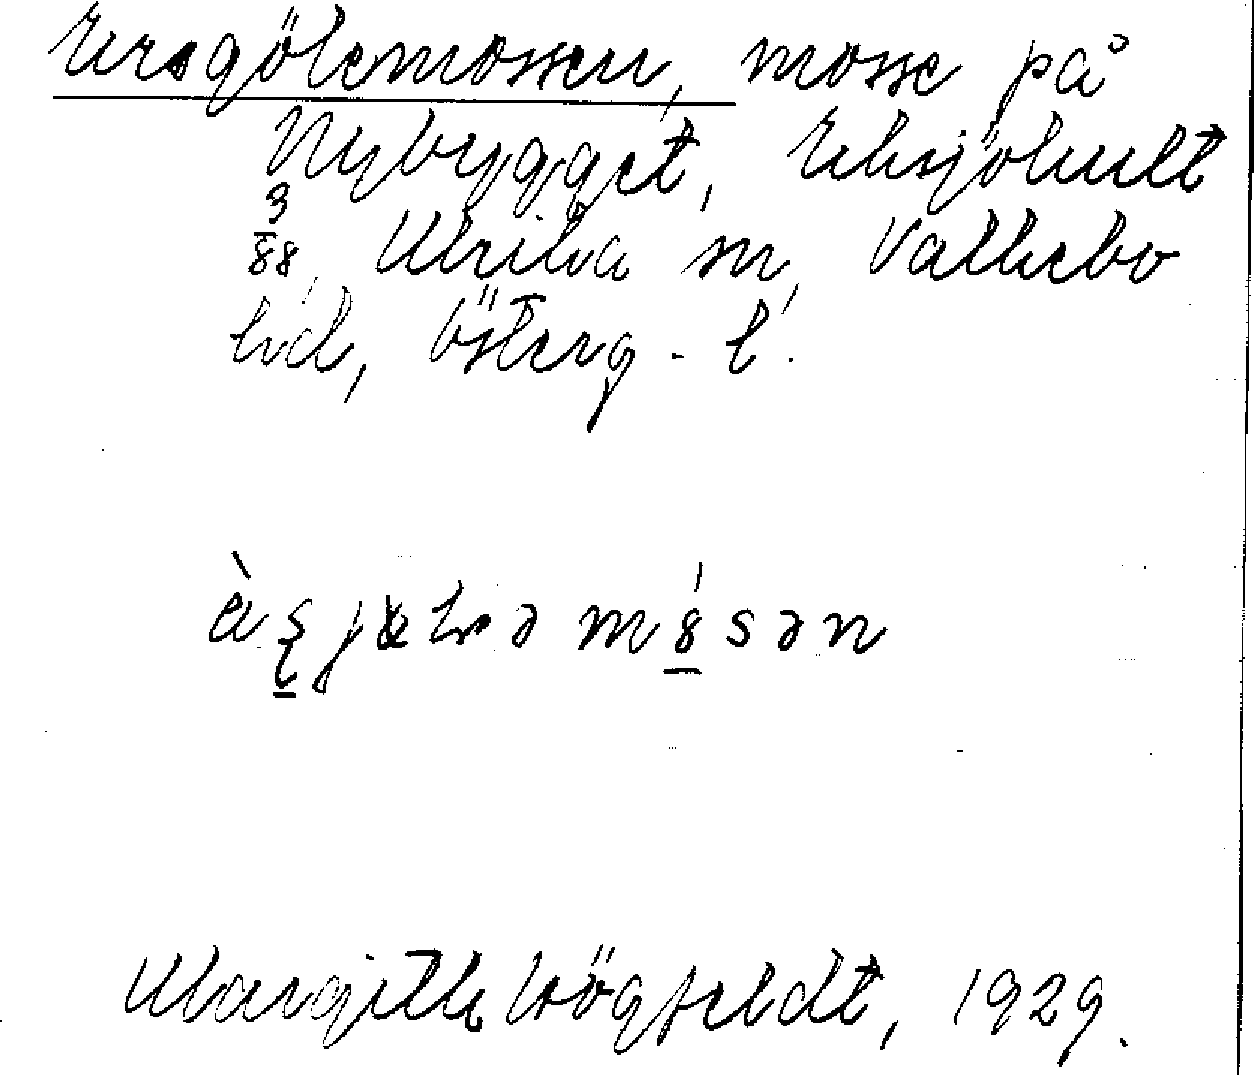 Ersgölemossen, mosse på
Nybygget, Eksjöhult
3/88, Ulrika sn, Valkebo
hd, Österg. l.
m s ə n
Margith Högfeldt, 1929.